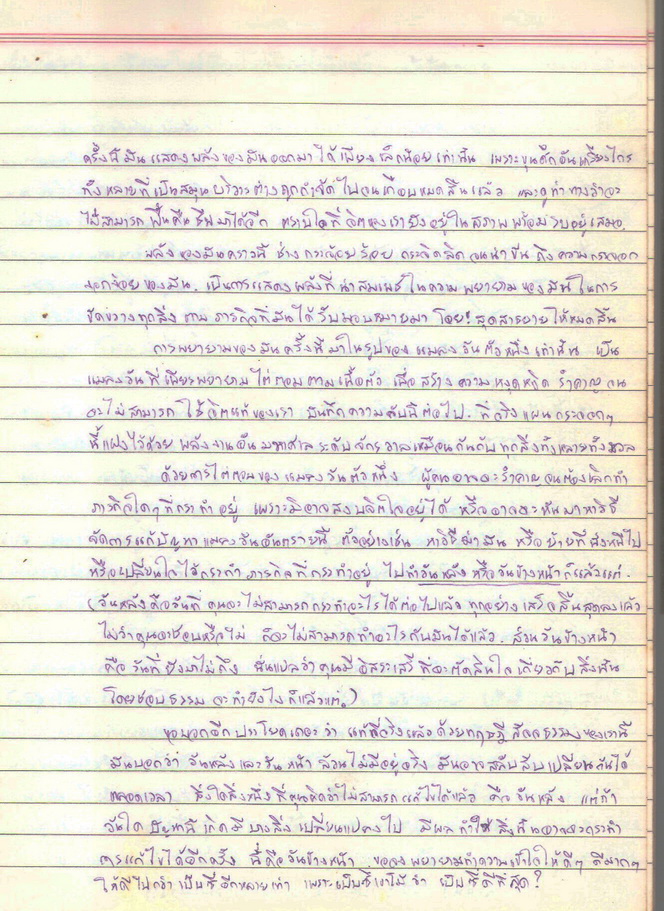 ครั้งนี้มันแสดงพลังของมันออกมาได้เพียงเล็กน้อยเท่านั้น เพราะขุนศึกอันเกรียงไกร
ทั้งหลายที่เป็นสมุนบริวารต่างถูกกำจัดไปจนเกือบหมดสิ้นแล้ว และดูท่าทางว่าจะ
ไม่สามารถฟื้นคืนชีพมาได้อีก ตราบใดที่จิตของเรายังอยู่ในสภาพพร้อมรบอยู่เสมอ
พลังของมันคราวนี้ ช่างกระจ้อยร่อย กระจิดลิด จนน่าขัน ถึงความกระจอก
งอกง่อยของมัน. เป็นการแสดงพลังที่น่าสมเพชในความพยายามของมันในการ
ขัดขวางทุกสิ่ง ตามภารกิจที่มันได้รับมอบหมายมา โดย! สุดสายให้หมดสิ้น
การพยายามของมันครั้งนี้มาในรูปของแมลงวันตัวหนึ่งเท่านั้น เป็น
แมลงวันที่เพียรพยายามไต่ตอมตามเนื้อตัว เพื่อสร้างความหงุดหงิด รำคาญจน
จะไม่สามารถใช้จิตแท้ของเรา บันทึกความลับนี้ต่อไป. ที่จริงแผนกระจอกๆ
นี้แฝงไว้ด้วยพลังงานอันมหาศาลระดับจักรวาลเหมือนกันกับทุกสิ่งทั้งหลายทั้งมวล
ด้วยการไต่ตอมของแมลงวันตัวหนึ่ง ผู้คนอาจจะรำคาญจนต้องเลิกทำ
ภารกิจใดๆที่กระทำอยู่ เพราะมิอาจสงบจิตใจอยู่ได้ หรืออาจจะหันมาหาวิธี
จัดการแก้ปัญหาแมลงวันอันตรายนี้ ตัวอย่างเช่น หาวิธีฆ่ามัน หรือย้ายที่นั่งหนีไป
หรือเปลี่ยนใจไว้กระทำภารกิจที่กระทำอยู่ ไปทำวันหลัง หรือวันข้างหน้าก็แล้วแต่.
(วันหลังคือวันที่คุณจะไม่สามารถกระทำอะไรได้ต่อไปแล้ว ทุกอย่างเสร็จสิ้นสุดลงแล้ว
ไม่ว่าคุณจะชอบหรือไม่ ก็จะไม่สามารถทำอะไรกับมันได้แล้ว. ส่วนวันข้างหน้า
คือวันที่ยังมาไม่ถึง นั่นแปลว่าคุณมีอิสระเสรีที่จะตัดสินใจเกี่ยวกับสิ่งนั้น
โดยชอบธรรม จะทำยังไงก็แล้วแต่.)
ขอบอกอีกประโยคเถอะว่า แท้ที่จริงแล้วด้วยทฤษฎีสัจธรรมของเรานี้
มันบอกว่า วันหลังและวันหน้า ล้วนไม่มีอยู่จริง มันอาจสลับสับเปลี่ยนกันได้
ตลอดเวลา สิ่งใดสิ่งหนึ่งที่คุณคิดว่าไม่สามารถแก้ไขได้แล้ว คือวันหลัง แต่ถ้า
วันใดปัญหานี้เกิดมีบางสิ่งเปลี่ยนแปลงไป มีผลทำให้สิ่งนั้นอาจจะกระทำ
การแก้ไขได้อีกครั้ง นี้คือวันข้างหน้า ขอลองพยายามทำความเข้าใจให้ดีๆ ดีมากๆ
ให้ดีไปกว่าเป็นซี้อีกหลายเท่า เพราะเป็นซี้เอาไว้ว่า เป็นซี้ดีที่สุด?